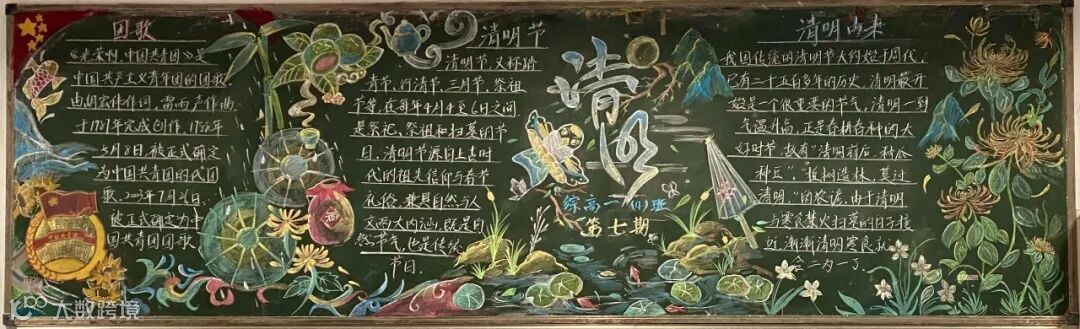 团歌
《光荣啊,中国共青团》是
中国共产主义青年团的团歌
由胡宏伟作词,雷雨声作曲,
于1987年完成创作,1988年
5月8日,被正式确定
为中国共青团的代团
歌,2003年7月24日,
被正式确定为中
国共青团团歌
清明节
清明节,又称踏
青节、行清节、三月节、祭祖
节等,在每年4月4至6日之间
是祭祀、祭祖和扫墓的节
日,清明节源自上古时
代的祖先信仰与春节
礼俗,兼具自然与人
文两大内涵,既是自
然节气,也是传统
节日。
清明
综高一(4)班
第七期
酒
清明由来
我国传统的清明节大约始于周代,
已有二千五百多年的历史,清明最开
始是一个很重要的节气,清明一到
气温升高,正是春耕春种的大
好时节,故有"清明前后,种瓜
种豆"。"植树造林,莫过
清明"的农谚,由于清明
与寒食禁火扫墓的日子接
近,渐渐清明寒食就
合二为一了。
大数跨境